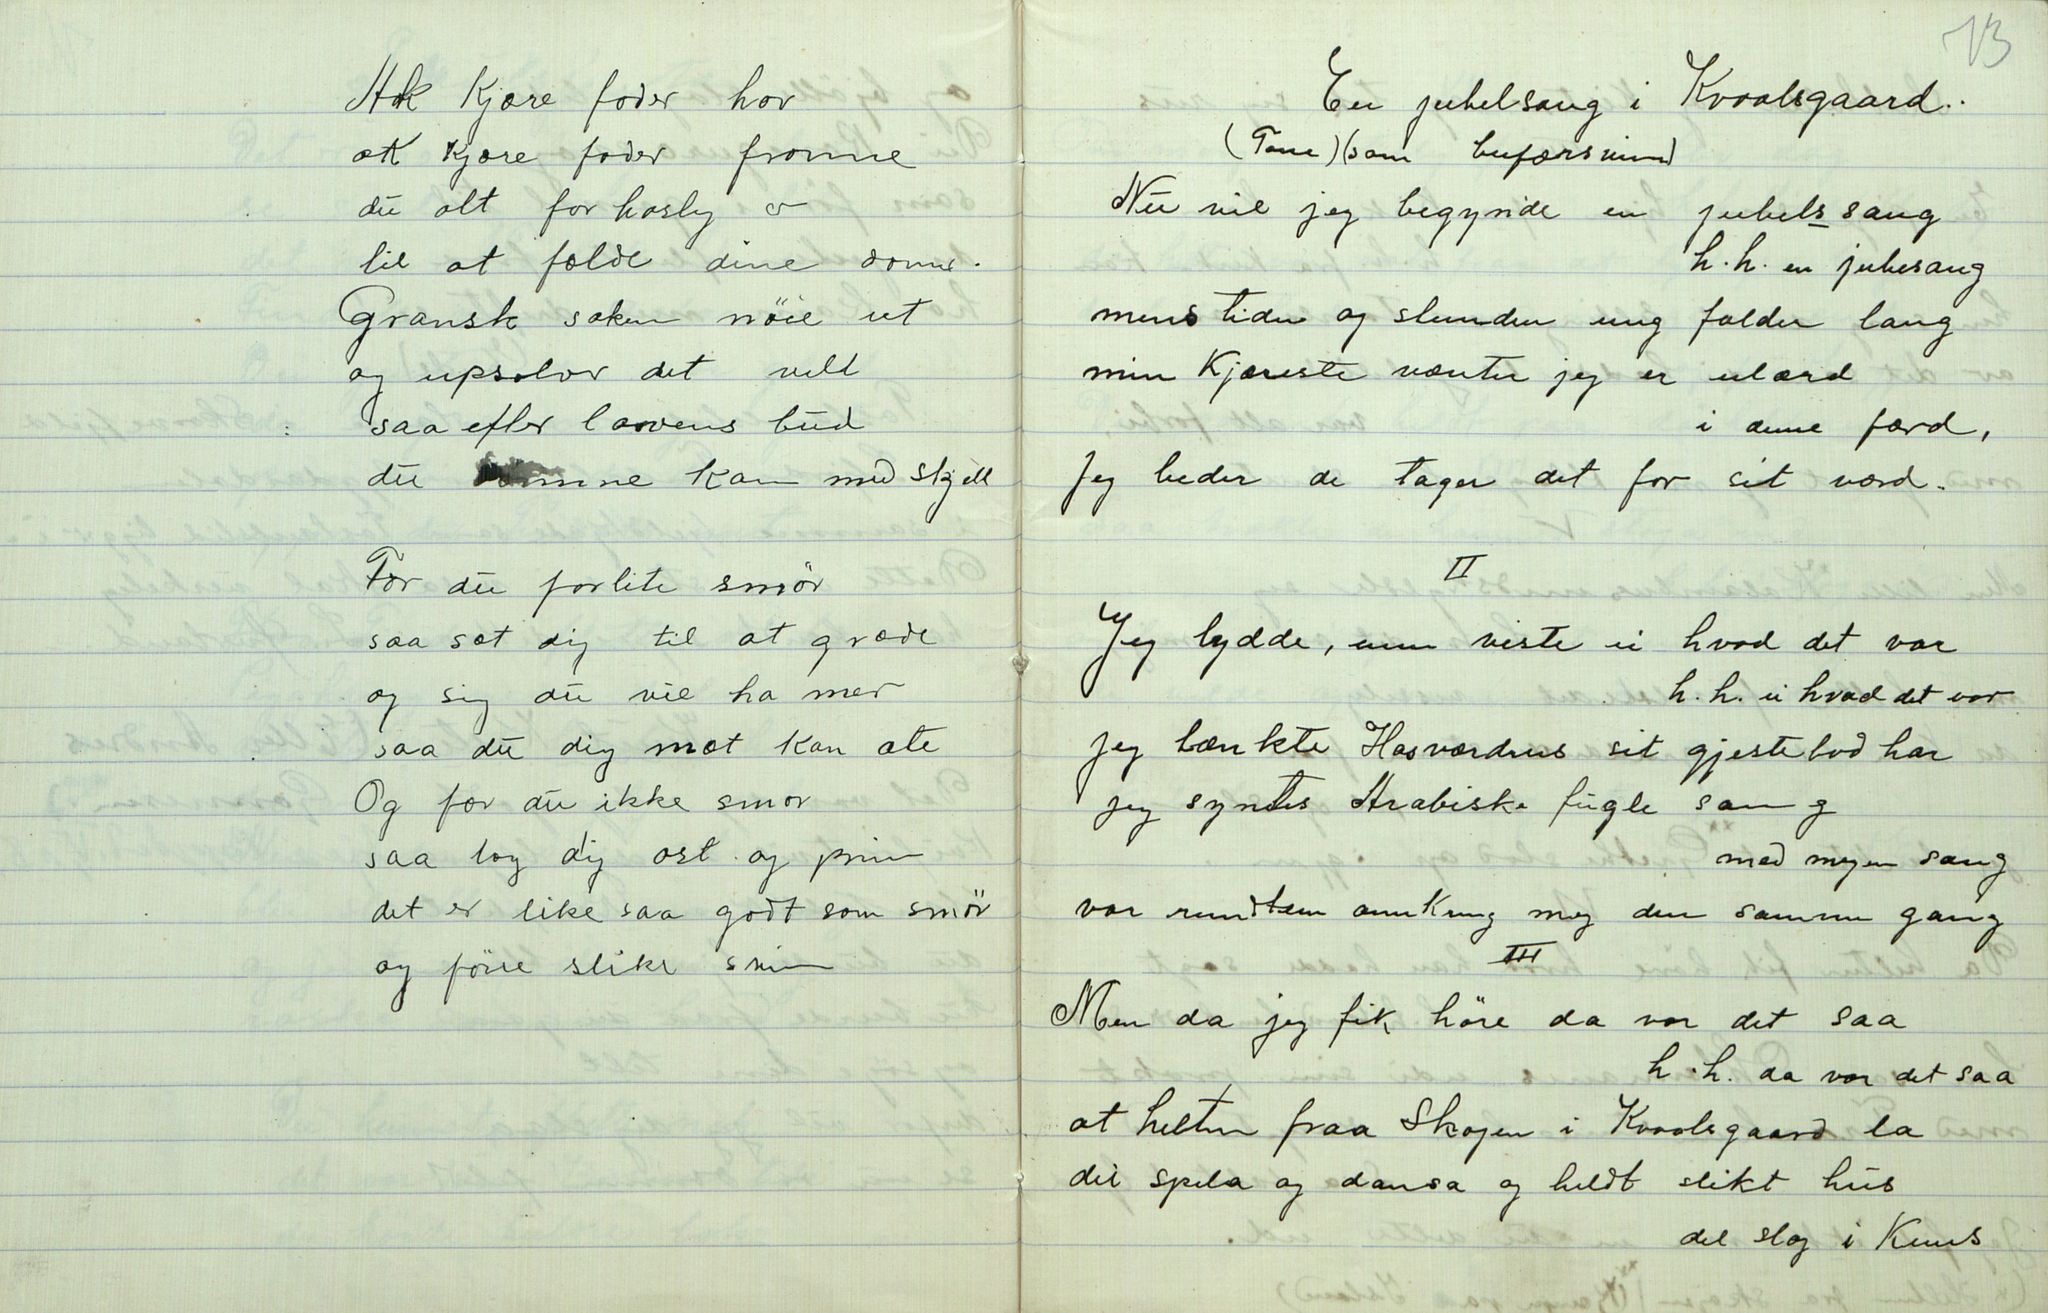 Ak Kjære fader hør
ak Kjære fader fromme
du alt for hastig er
til at fælde dine domme.
Gransk saken nöie ut
og upsalvr det veld
saa efter lovens bud
du dømme kan med skjell
Før du forlite smör
saa sæt dig til at græde
og sig du vil ha mer
saa du dig mæt kan æte
Og før du ikke smør
saa tag dig ost og prim
det er like saa godt som smör
og fölie slike smin
13
En jubelsang i Kvaalsgaard.
(Tone) (som buførsvind)
Nu vil jeg begynde en jubelssang
h. h. en jubesang
mens tiden og stunden ung falder lang
min Kjæreste vænter jeg er ulærd
i denne færd,
Jeg beder de tager det for sit værd.
II
Jeg lydde, men viste ei hvad det var
h. h. ei hvad det var
jeg tænkte Hasværdrus sit gjestebod har
jeg syntes Arabiske fugle sang
med megen sang
var rundtem omkring meg den samme gang
III
Men da jeg fik höre da var det saa
h. h. da var det saa
at helten fraa Skogen i Kvaalsgaard la
dei spela og dansa og heldt slikt hus
del slog i Knus